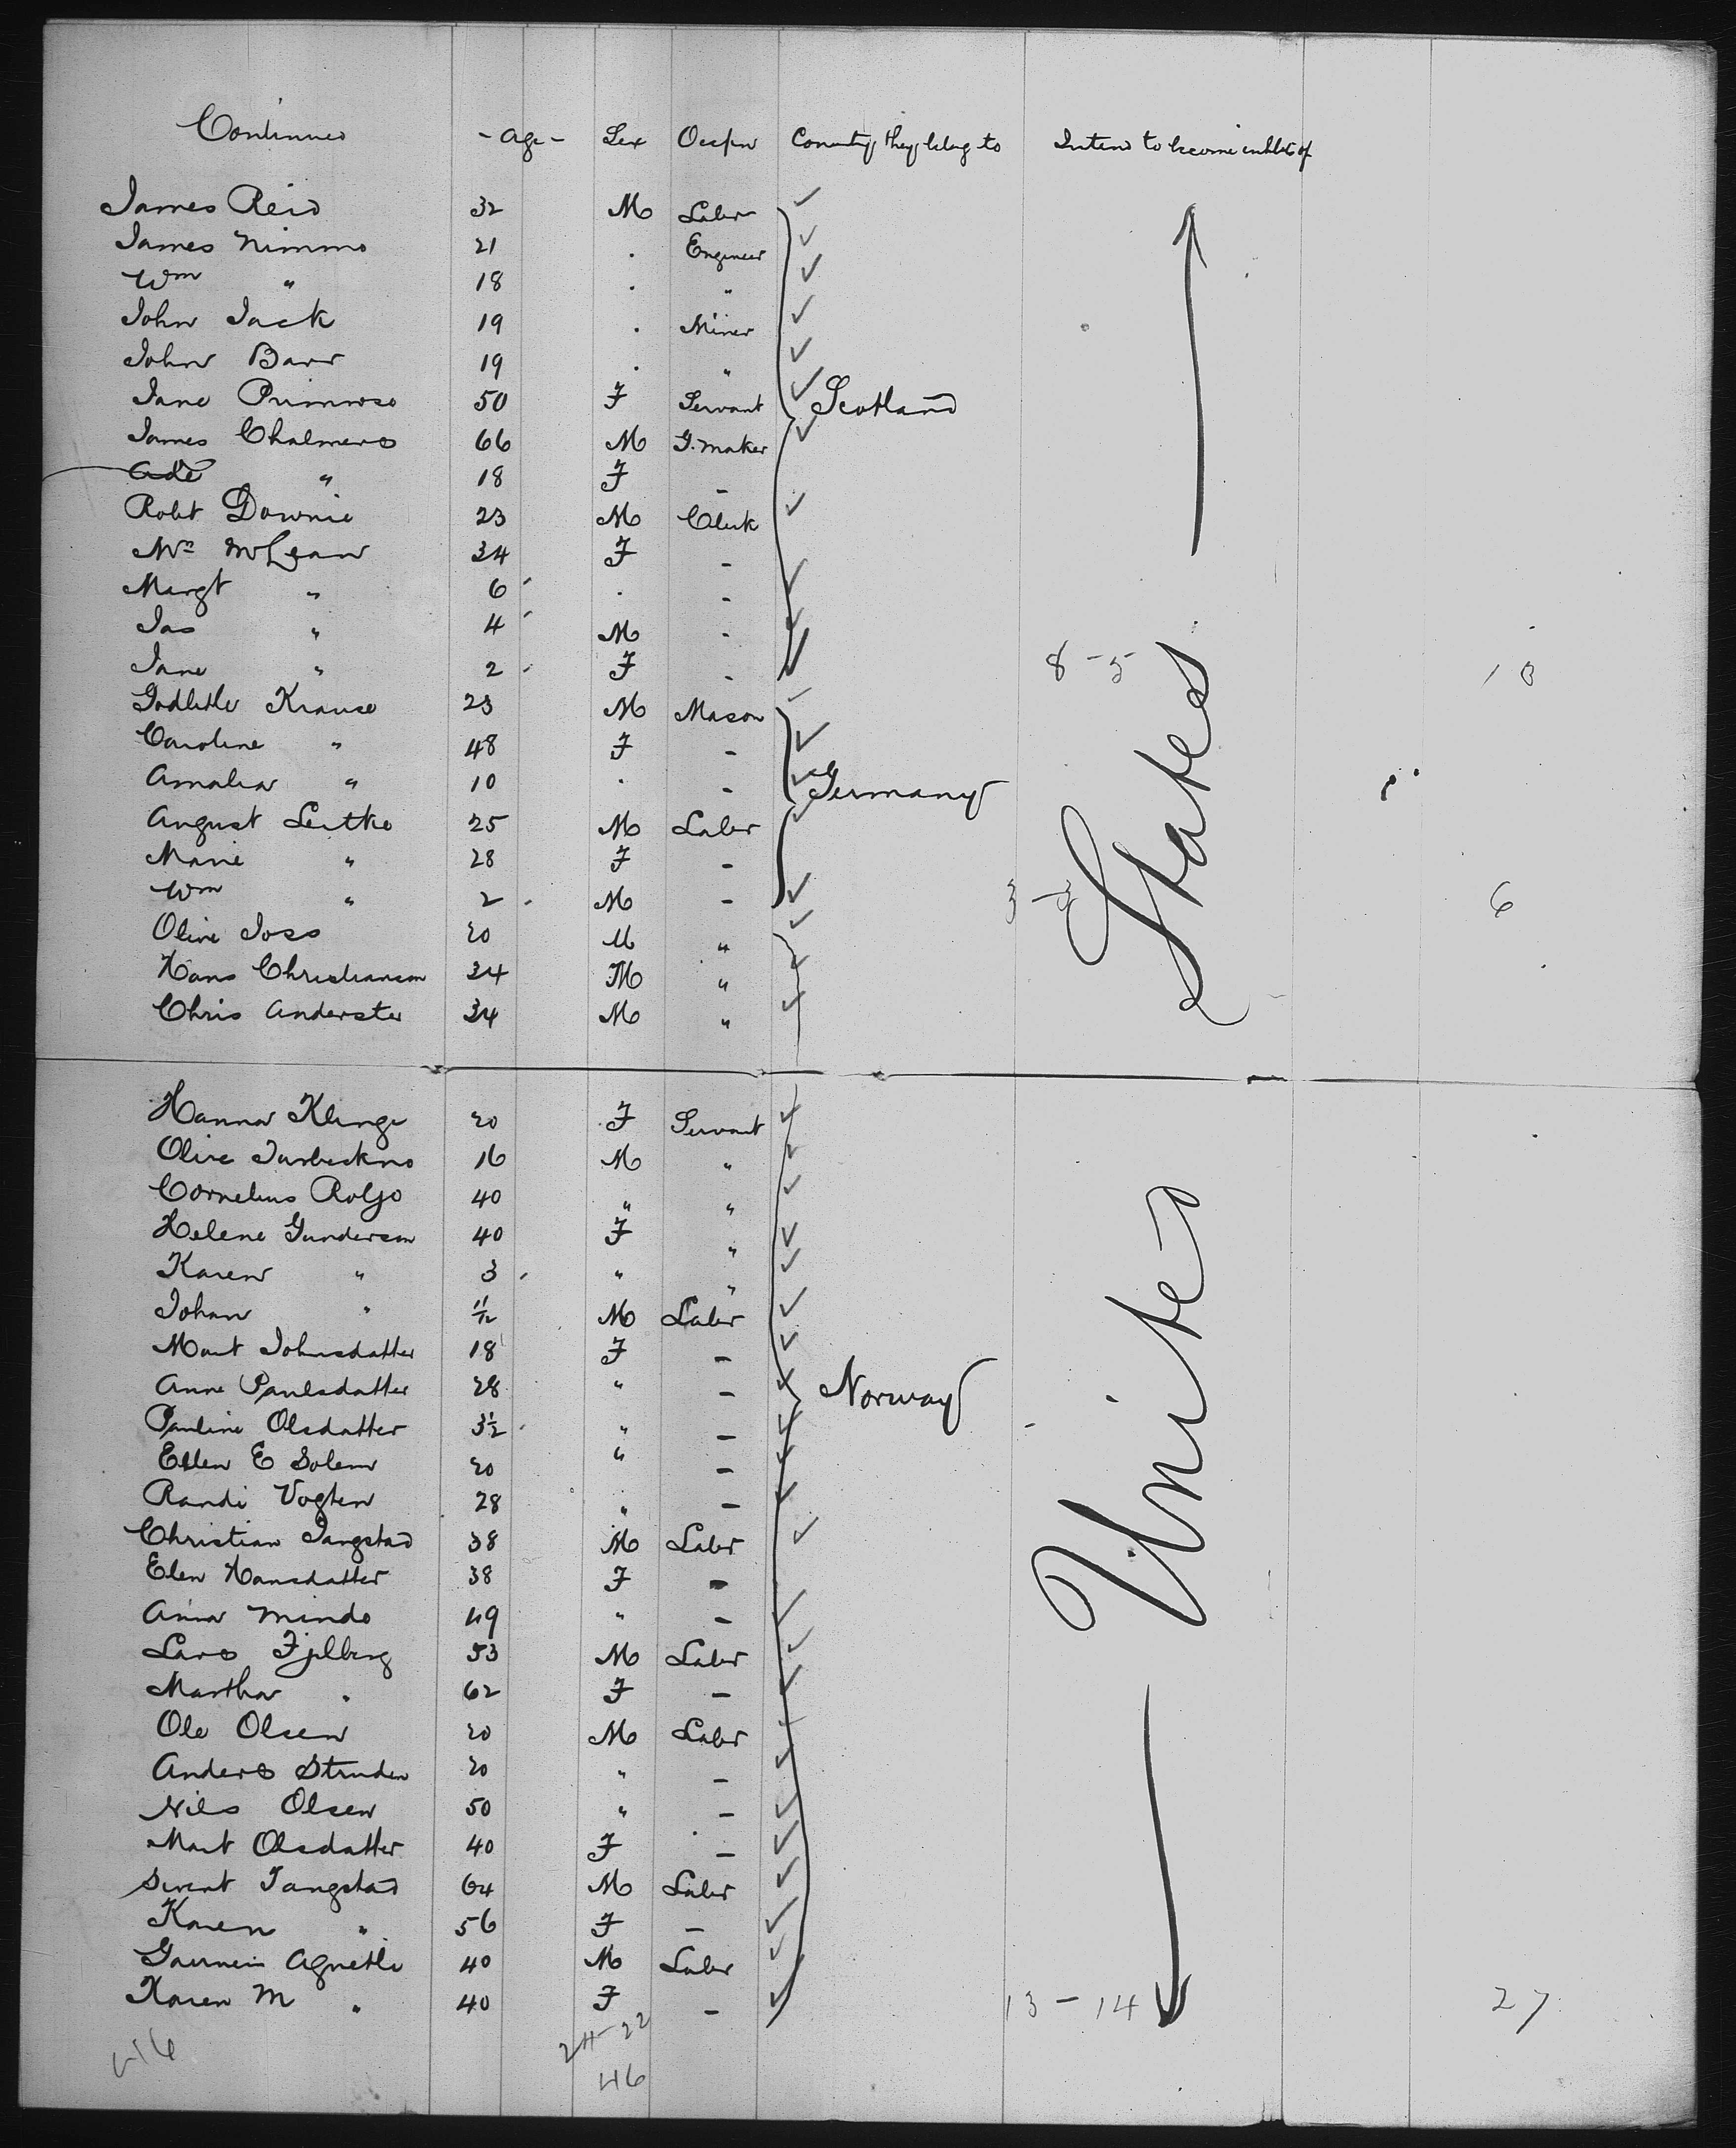 Continued - Age - Sex Occpn Country they belong to Intend to become inhbts of
James Reid 32 M Labr
James Nimmo 21 . Engineer
Wm " 18 . "
John Jack 19 . Miner
John Barr 19 . "
Jane Primrose 50 F Servant Scotland
James Chalmers 66 M G. maker
Ade " 18 F -
Robt Downie 23 M Clerk
Mrs McLean 34 F -
Margt " 6 . -
Jas " 4 M -
Jane " 2 F - 8-5 13
Godlitle Krause 23 M Mason
Caroline " 48 F -
Amalia " 10 . - Germany
August Leitke 25 M Labr
Marie " 28 F -
Wm " 2 M - 3-3 6
Oline Joss 20 M "
Hans Christiansen 34 M "
Chris Anderster 34 M "
United States
Hanna Klinge 20 F Servant
Olive 16 M "
Cornelius Roljo 40 " "
Helene Gunderson 40 F "
Karen " 3 " "
Johan " 11/12 M Labr
Marit Johnsdatter 18 F -
Anne Paulsdatter 28 " - Norway
Pauline Olsdatter 3½ " -
Ellen E Solem 20 " -
Randi Vogten 28 " -
Christian Tangstad 38 M Labr
Elen Hansdatter 38 F -
Anna Mindo 49 " -
Lars Fjelberg 53 M Labr
Martha " 62 F -
Ole Olsen 20 M Labr
Anders Struden 20 " -
Nils Olsen 50 " -
Marit Olsdatter 40 F -
Sivert Tangstad 64 M Labr
Karen " 56 F -
Agnethe 40 M Labr
Karen M " 40 F - 13-14 27
24-22
46